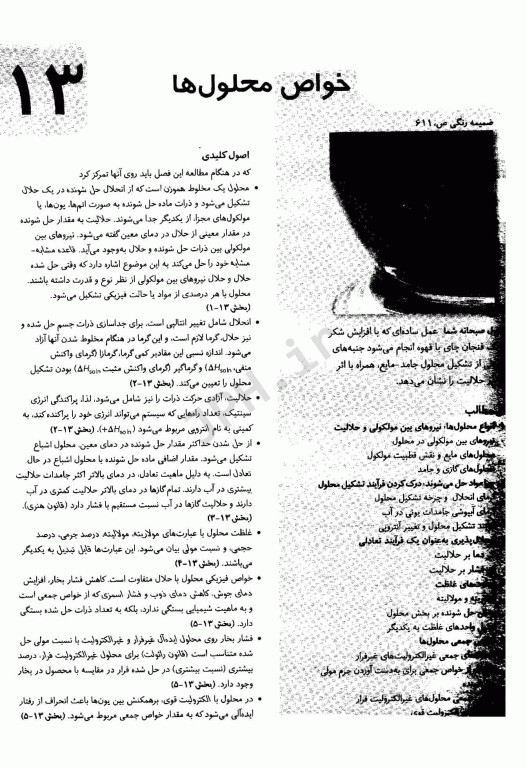 ۱۳
خواص محلول‌ها
ضمیمه رنگی ص. ۶۱۱
اصول کلیدی
که در هنگام مطالعه این فصل باید روی آنها تمرکز کرد
• محلول یک مخلوط هموژن است که از انحلال حل شونده در یک حلال
تشکیل می‌شود و ذرات ماده حل شونده به صورت اتم‌ها، یون‌ها، یا
مولکول‌های مجزا، از یکدیگر جدا می‌شوند. حلالیت به مقدار حل شونده
در مقدار معینی از حلال در دمای معین گفته می‌شود. نیروهای بین
مولکولی بین ذرات حل شونده و حلال به‌وجود می‌آید. قاعده مشابه-
مشابه خود را حل می‌کند به این موضوع اشاره دارد که وقتی حل شده
حلال و حلال نیروهای بین مولکولی از نظر نوع و قدرت داشته باشند.
محلول با هر درصدی از مواد یا حالت فیزیکی تشکیل می‌شود.
(بخش ۱۳-۱)
• انحلال شامل تغییر انتالپی است. برای جداسازی ذرات جسم حل شده و
نیز حلال، گرما لازم است، و این گرما در هنگام مخلوط شدن آنها آزاد
می‌شود. اندازه نسبی این مقادیر کمی گرما، گرمازا (گرمای واکنش
منفی، ΔHsoln) و گرماگیر (گرمای واکنش مثبت ΔHsoln) بودن تشکیل
محلول را تعیین می‌کند. (بخش ۱۳-۲)
• حلالیت، آزادی حرکت ذرات را نیز شامل می‌شود، لذا، پراکندگی انرژی
سینتیک، تعداد راه‌هایی که سیستم می‌تواند انرژی خود را پراکنده کند، به
کمیتی به نام آنتروپی مربوط می‌شود (+ΔHsoln). (بخش ۱۳-۲)
• از حل شدن حداکثر مقدار حل شونده در دمای معین، محلول اشباع
تشکیل می‌شود. مقدار اضافی ماده حل شونده با محلول اشباع در حال
تعادل است. به دلیل ماهیت تعادل، در دمای بالاتر اکثر جامدات حلالیت
بیشتری در آب دارند. تمام گازها در دمای بالاتر حلالیت کمتری در آب
دارند و حلالیت گازها در آب نسبت مستقیم با فشار دارد (قانون هنری).
(بخش ۱۳-۳)
• غلظت محلول با عبارت‌های مولاریته، مولالیته، درصد جرمی، درصد
حجمی، و نسبت مولی بیان می‌شود. این عبارت‌ها قابل تبدیل به یکدیگر
می‌باشند. (بخش ۱۳-۴)
• خواص فیزیکی محلول با حلال متفاوت است. کاهش فشار بخار، افزایش
دمای جوش، کاهش دمای ذوب و فشار اسمزی که از خواص جمعی است
و به ماهیت شیمیایی بستگی ندارد، بلکه به تعداد ذرات حل شده بستگی
دارد. (بخش ۱۳-۵)
• فشار بخار روی محلول ایده‌آل غیرفرار و غیرالکترولیت با نسبت مولی حل
شده متناسب است (قانون رائولت) برای محلول غیرالکترولیت فرار، درصد
بیشتری (نسبت بیشتری) در حل شده فرار در مقایسه با محصول در بخار
وجود دارد. (بخش ۱۳-۵)
• در محلول با الکترولیت قوی، برهمکنش بین یون‌ها باعث انحراف از رفتار
ایده‌آلی می‌شود که به مقدار خواص جمعی مربوط می‌شود. (بخش ۱۳-۵)
صبحانه شما عمل ساده‌ای که با افزایش شکر
فنجان چای یا قهوه انجام می‌شود جنبه‌های
از تشکیل محلول جامد -مایع، همراه با اثر
حلالیت را نشان می‌دهد.
مطالب
انواع محلول‌ها: نیروهای بین مولکولی و حلالیت
نیروهای بین مولکولی در محلول
محلول‌های مایع و نقش قطبیت مولکول
محلول‌های گازی و جامد
مواد حل می‌شوند: درک کردن فرآیند تشکیل محلول
انحلال و چرخه تشکیل محلول
آبپوشی جامدات یونی در آب
تشکیل محلول و تغییر آنتروپی
به‌عنوان یک فرآیند تعادلی
دما بر حلالیت
فشار بر حلالیت
غلظت
و مولالیته
حل شونده بر بخش محلول
واحدهای غلظت به یکدیگر
جمعی محلول‌ها
جمعی غیرالکترولیت‌های غیرفرار
از خواص جمعی برای به‌دست آوردن جرم مولی
جمعی محلول‌های غیرالکترولیت فرار
الکترولیت قوی